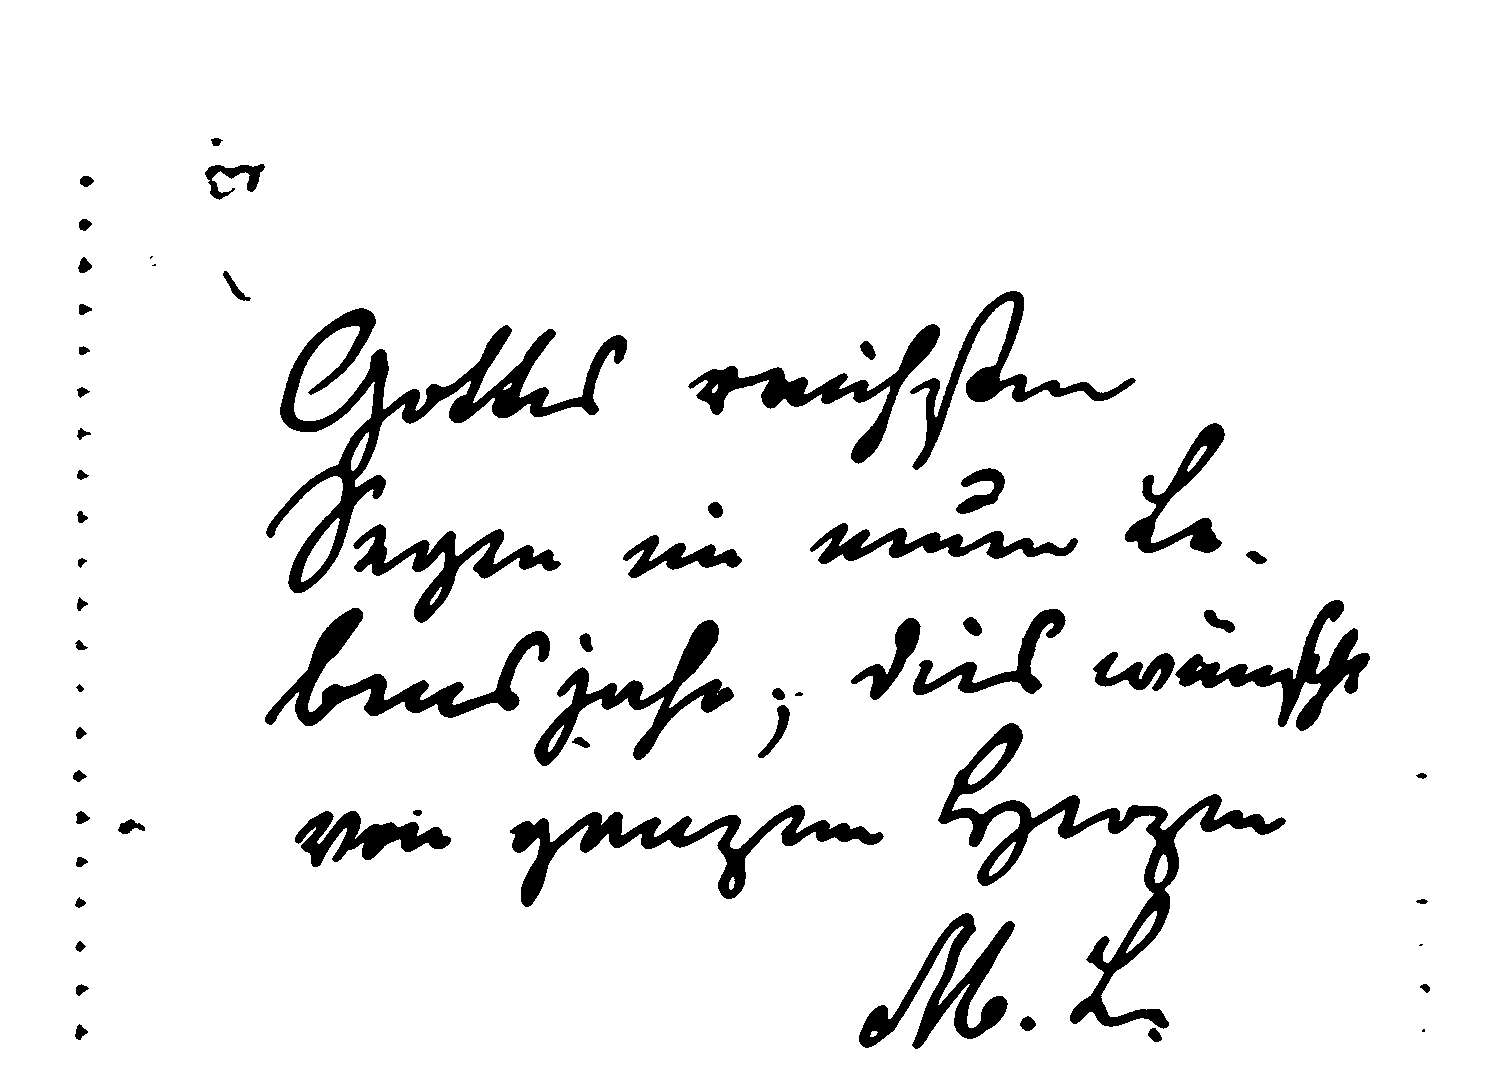 Gottes reichsten
Segen im neuen Le-
bensjahr, dies wünscht
von ganzem Herzen
M. L.